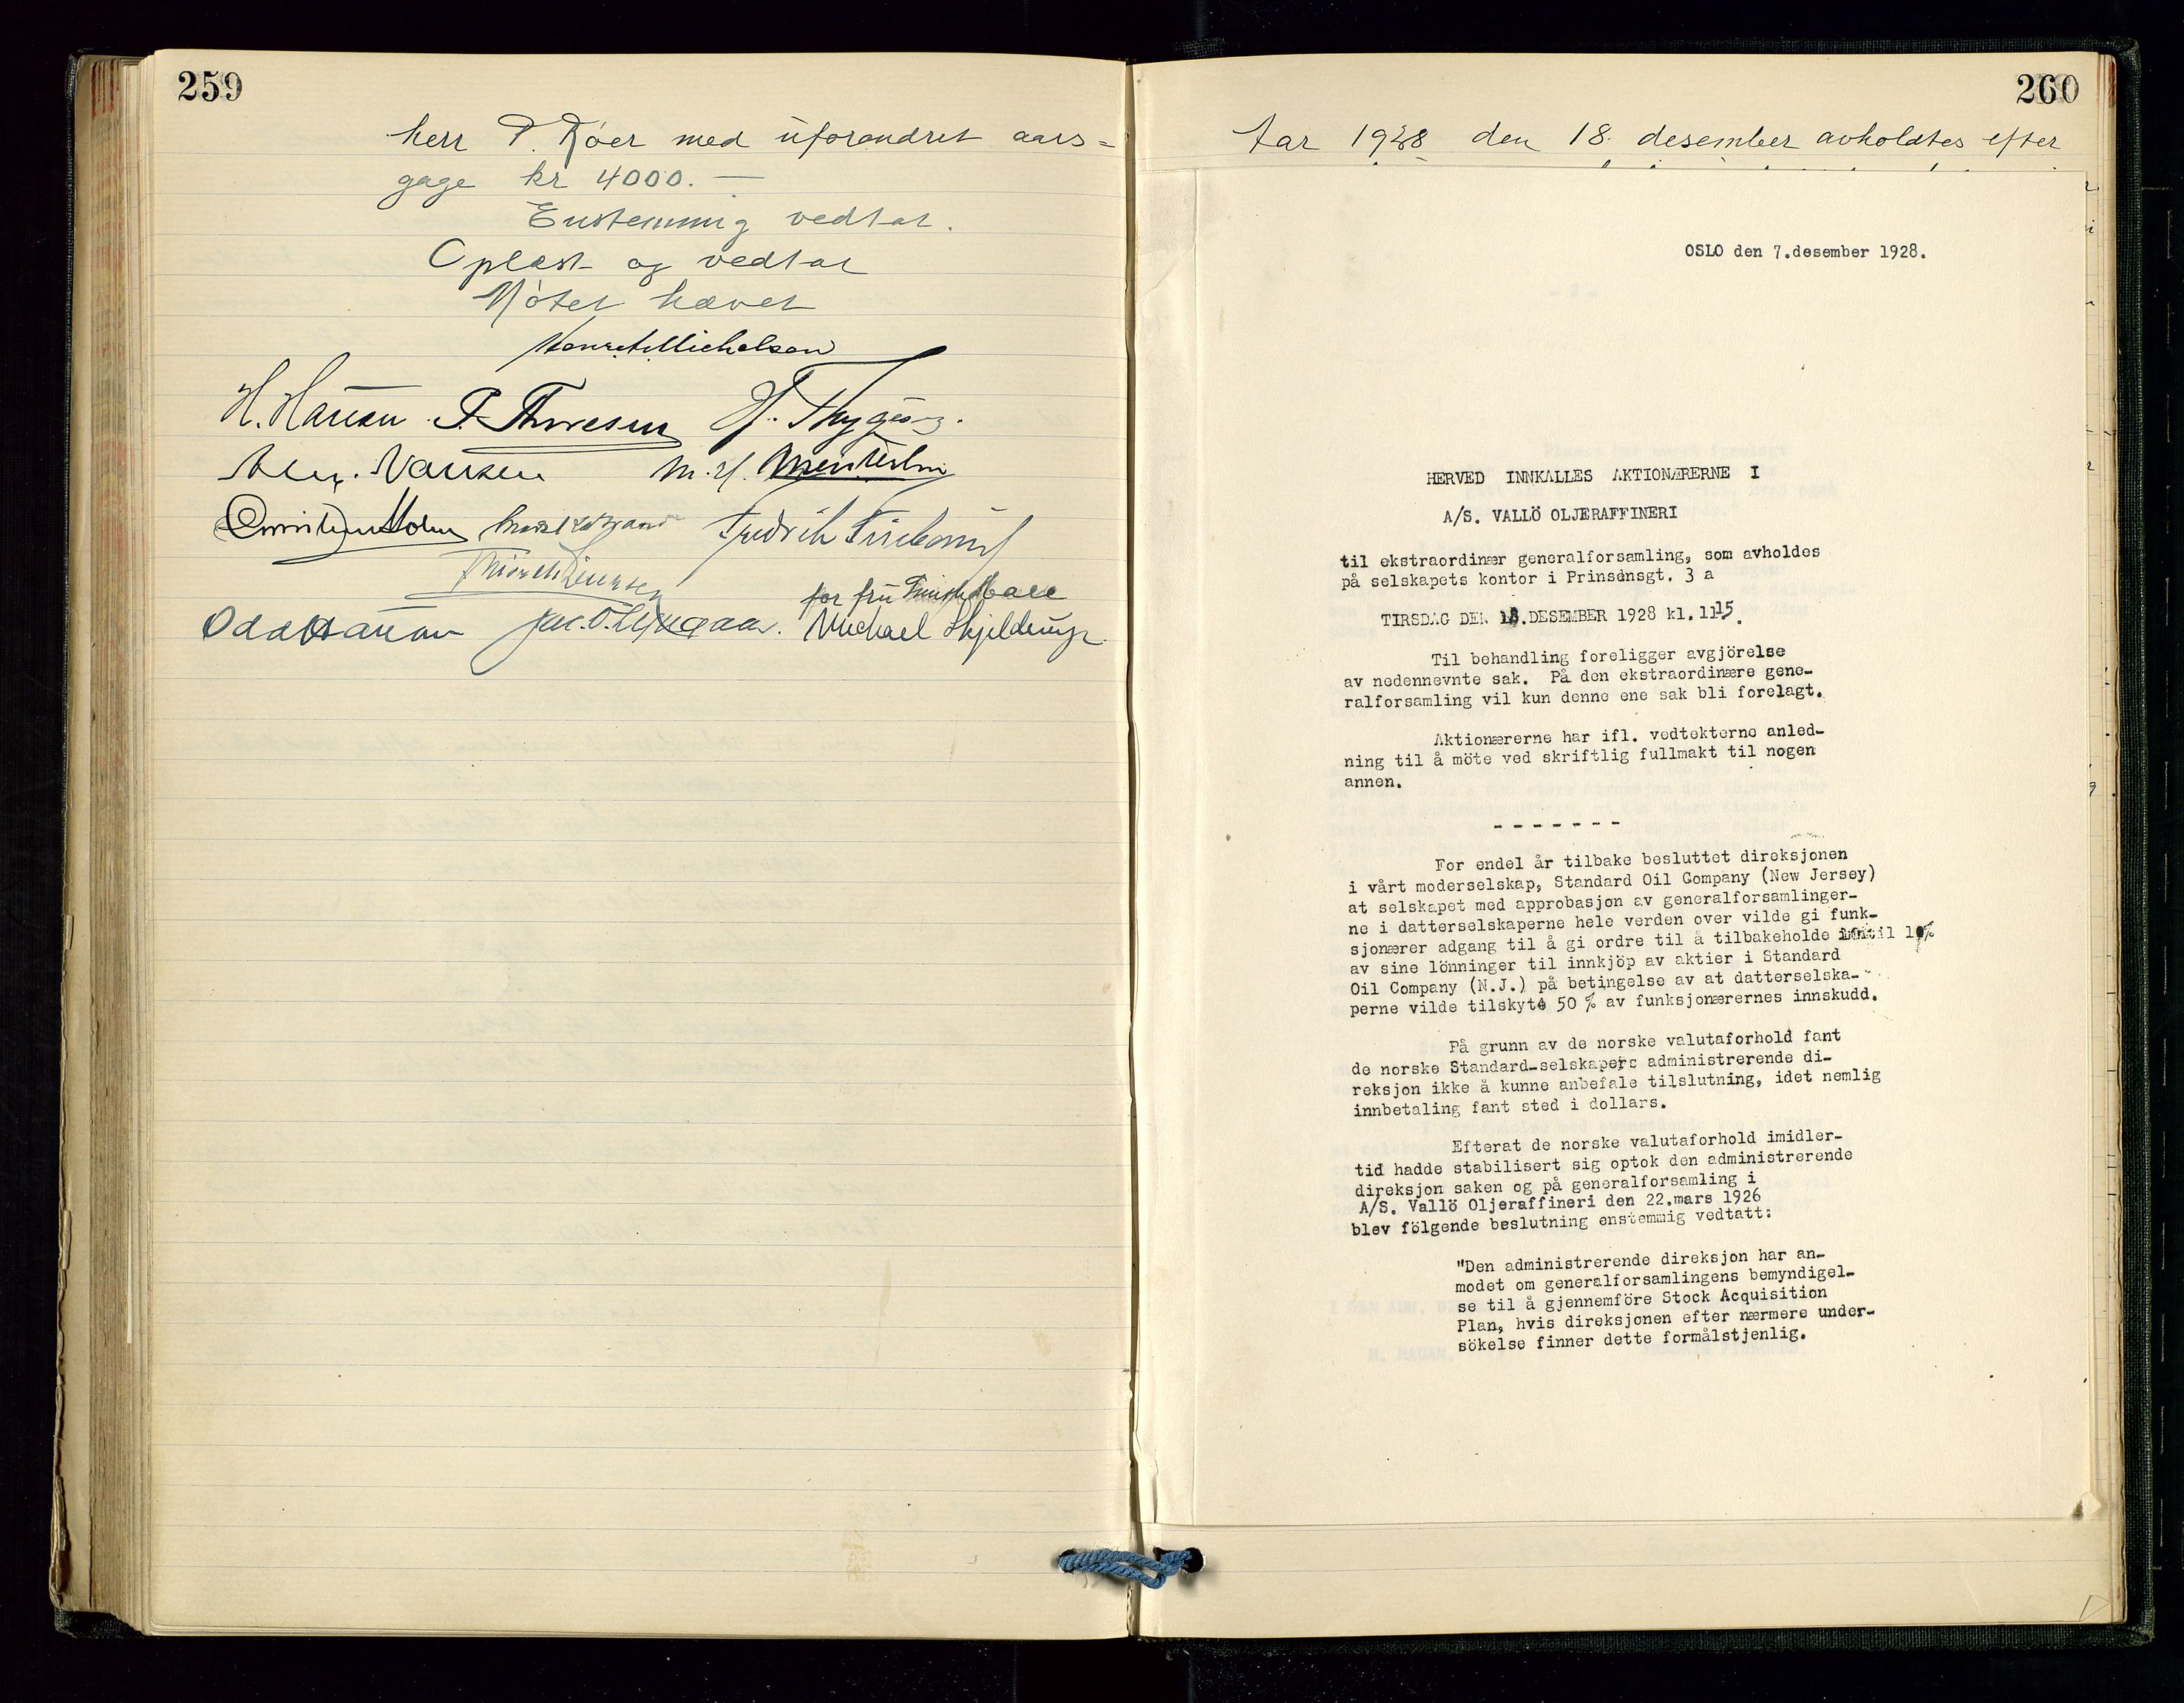 259
herr P. Röer med uforandret aars=
gage kr 4000.—
Enstemmig vedtat.
Oplæst og vedtat
Møtet hævet
H. Hansen P. Thoresen
Nansen M. H.
Christian Holm Fredrik
for fru
Odd Hansen Michael Skjelderup
260
Aar 1928 den 18. desember avholdtes efter
OSLO den 7.desember 1928.
HERVED INNKALLES AKTIONÆRERNE I
A/S. VALLÖ OLJERAFFINERI
til ekstraordinær generalforsamling, som avholdes
på selskapets kontor i Prinsensgt. 3 a
TIRSDAG DEN 18.DESEMBER 1928 kl. 1115.
Til behandling foreligger avgjörelse
av nedennevnte sak. På den ekstraordinære gene-
ralforsamling vil kun denne ene sak bli forelagt.
Aktionærerne har ifl. vedtekterne anled-
ning til å möte ved skriftlig fullmakt til nogen
annen.
- - - - - - -
For endel år tilbake besluttet direksjonen
i vårt moderselskap, Standard Oil Company (New Jersey)
at selskapet med approbasjon av generalforsamlinger-
ne i datterselskaperne hele verden over vilde gi funk-
sjonærer adgang til å gi ordre til å tilbakeholde inntil 10%
av sine lönninger til innkjöp av aktier i Standard
Oil Company (N.J.) på betingelse av at datterselska-
perne vilde tilskyte 50 % av funksjonærernes innskudd.
På grunn av de norske valutaforhold fant
de norske Standard-selskapers administrerende di-
reksjon ikke å kunne anbefale tilslutning, idet nemlig
innbetaling fant sted i dollars.
Efterat de norske valutaforhold imidler-
tid hadde stabilisert sig optok den administrerende
direksjon saken og på generalforsamling i
A/S. Vallö Oljeraffineri den 22.mars 1926
blev fölgende beslutning enstemmig vedtatt:
"Den administrerende direksjon har an-
modet om generalforsamlingens bemyndigel-
se til å gjennemföre Stock Acquisition
Plan, hvis direksjonen efter nærmere under-
sökelse finner dette formålstjenlig.